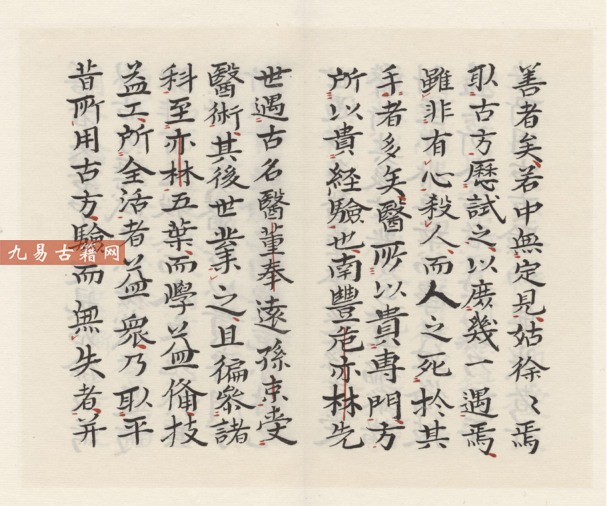 善者矣若中無定見姑徐〻焉
取古方歷試之以庶幾一遇焉
雖非有心殺人而人之死於其
手者多矣醫所以貴專門方
所以貴經驗也南豐危亦林先
世遇古名醫董奉遠孫京受
醫術其後世業之且徧參諸
科至亦林五葉而學益備技
益工所全活者益衆乃取平
昔所用古方驗而無失者并
九易古籍网